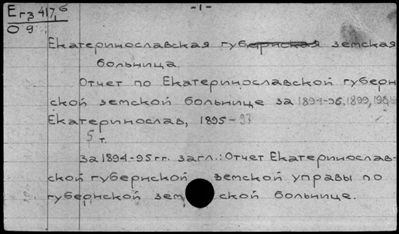 Егз 417,6
О 9
- 1 -
Екатеринославская губернская земская
больница.
Отчет по Екатеринославской губерн
ской земской больнице за 1894-96, 1899,
Екатеринослав, 1895-97
5 т.
за 1894-95 гг. загл.: Отчет Екатеринослав-
ской губернской земской управы по
губернской зем ской больнице.